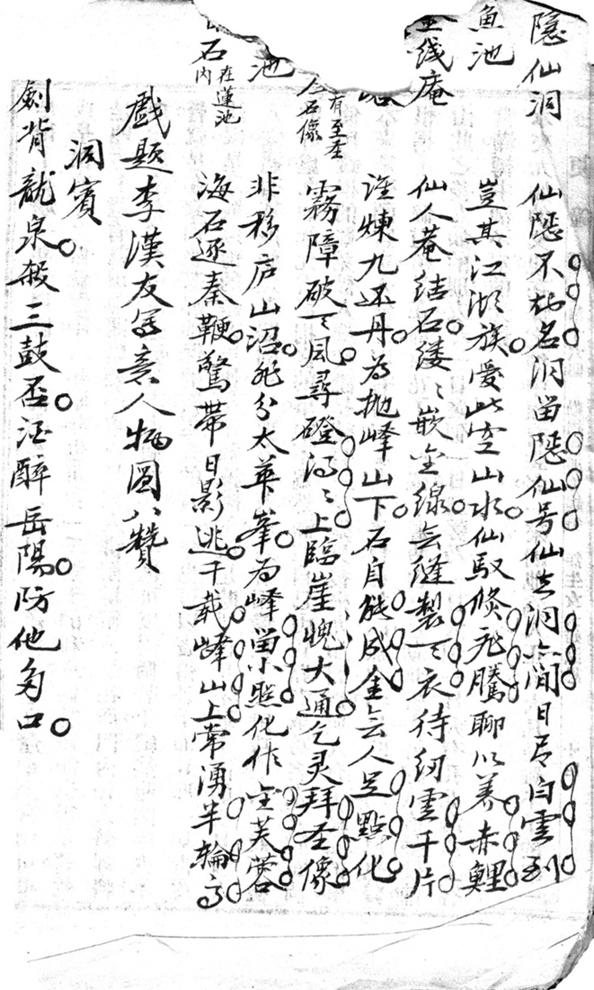 隱仙洞 仙隱不知名洞留隱仙号仙去洞亦閒日有白雲到
魚池 豈其江湖族愛此空山水仙馭倏飛騰聊以養赤鯉
线庵 仙人菴結石縷〻嵌金線无縫製天衣待紉雲千片
誰煉九还丹为抛峰山下石自能成金无人足點化
有至圣人石像 霧障破天風尋磴得〻上臨崖愧大通乞灵拜圣像
池 非移庐山沼飛分太華峯为峰留小照化作金芙蓉
石 在蓮池内 海石逐秦鞭驚帶日影逃千载峰山上常湧半輪高
戲題李漢友写意人物圖八贊
洞賓
劍背龍泉殺三鼓否酒醉岳陽防他多口